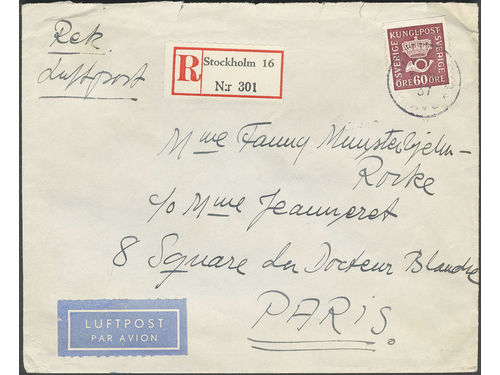 Rek.
Luftpost
R Stockholm 16
N:r 301
SVERIGE KUNGLPOST SVERIGE
ÖRE 60 ÖRE
37
Mme Fanny
Rocke
c/o Mme Jeanneret
8 Square du Docteur Blanche
PARIS
LUFTPOST
PAR AVION